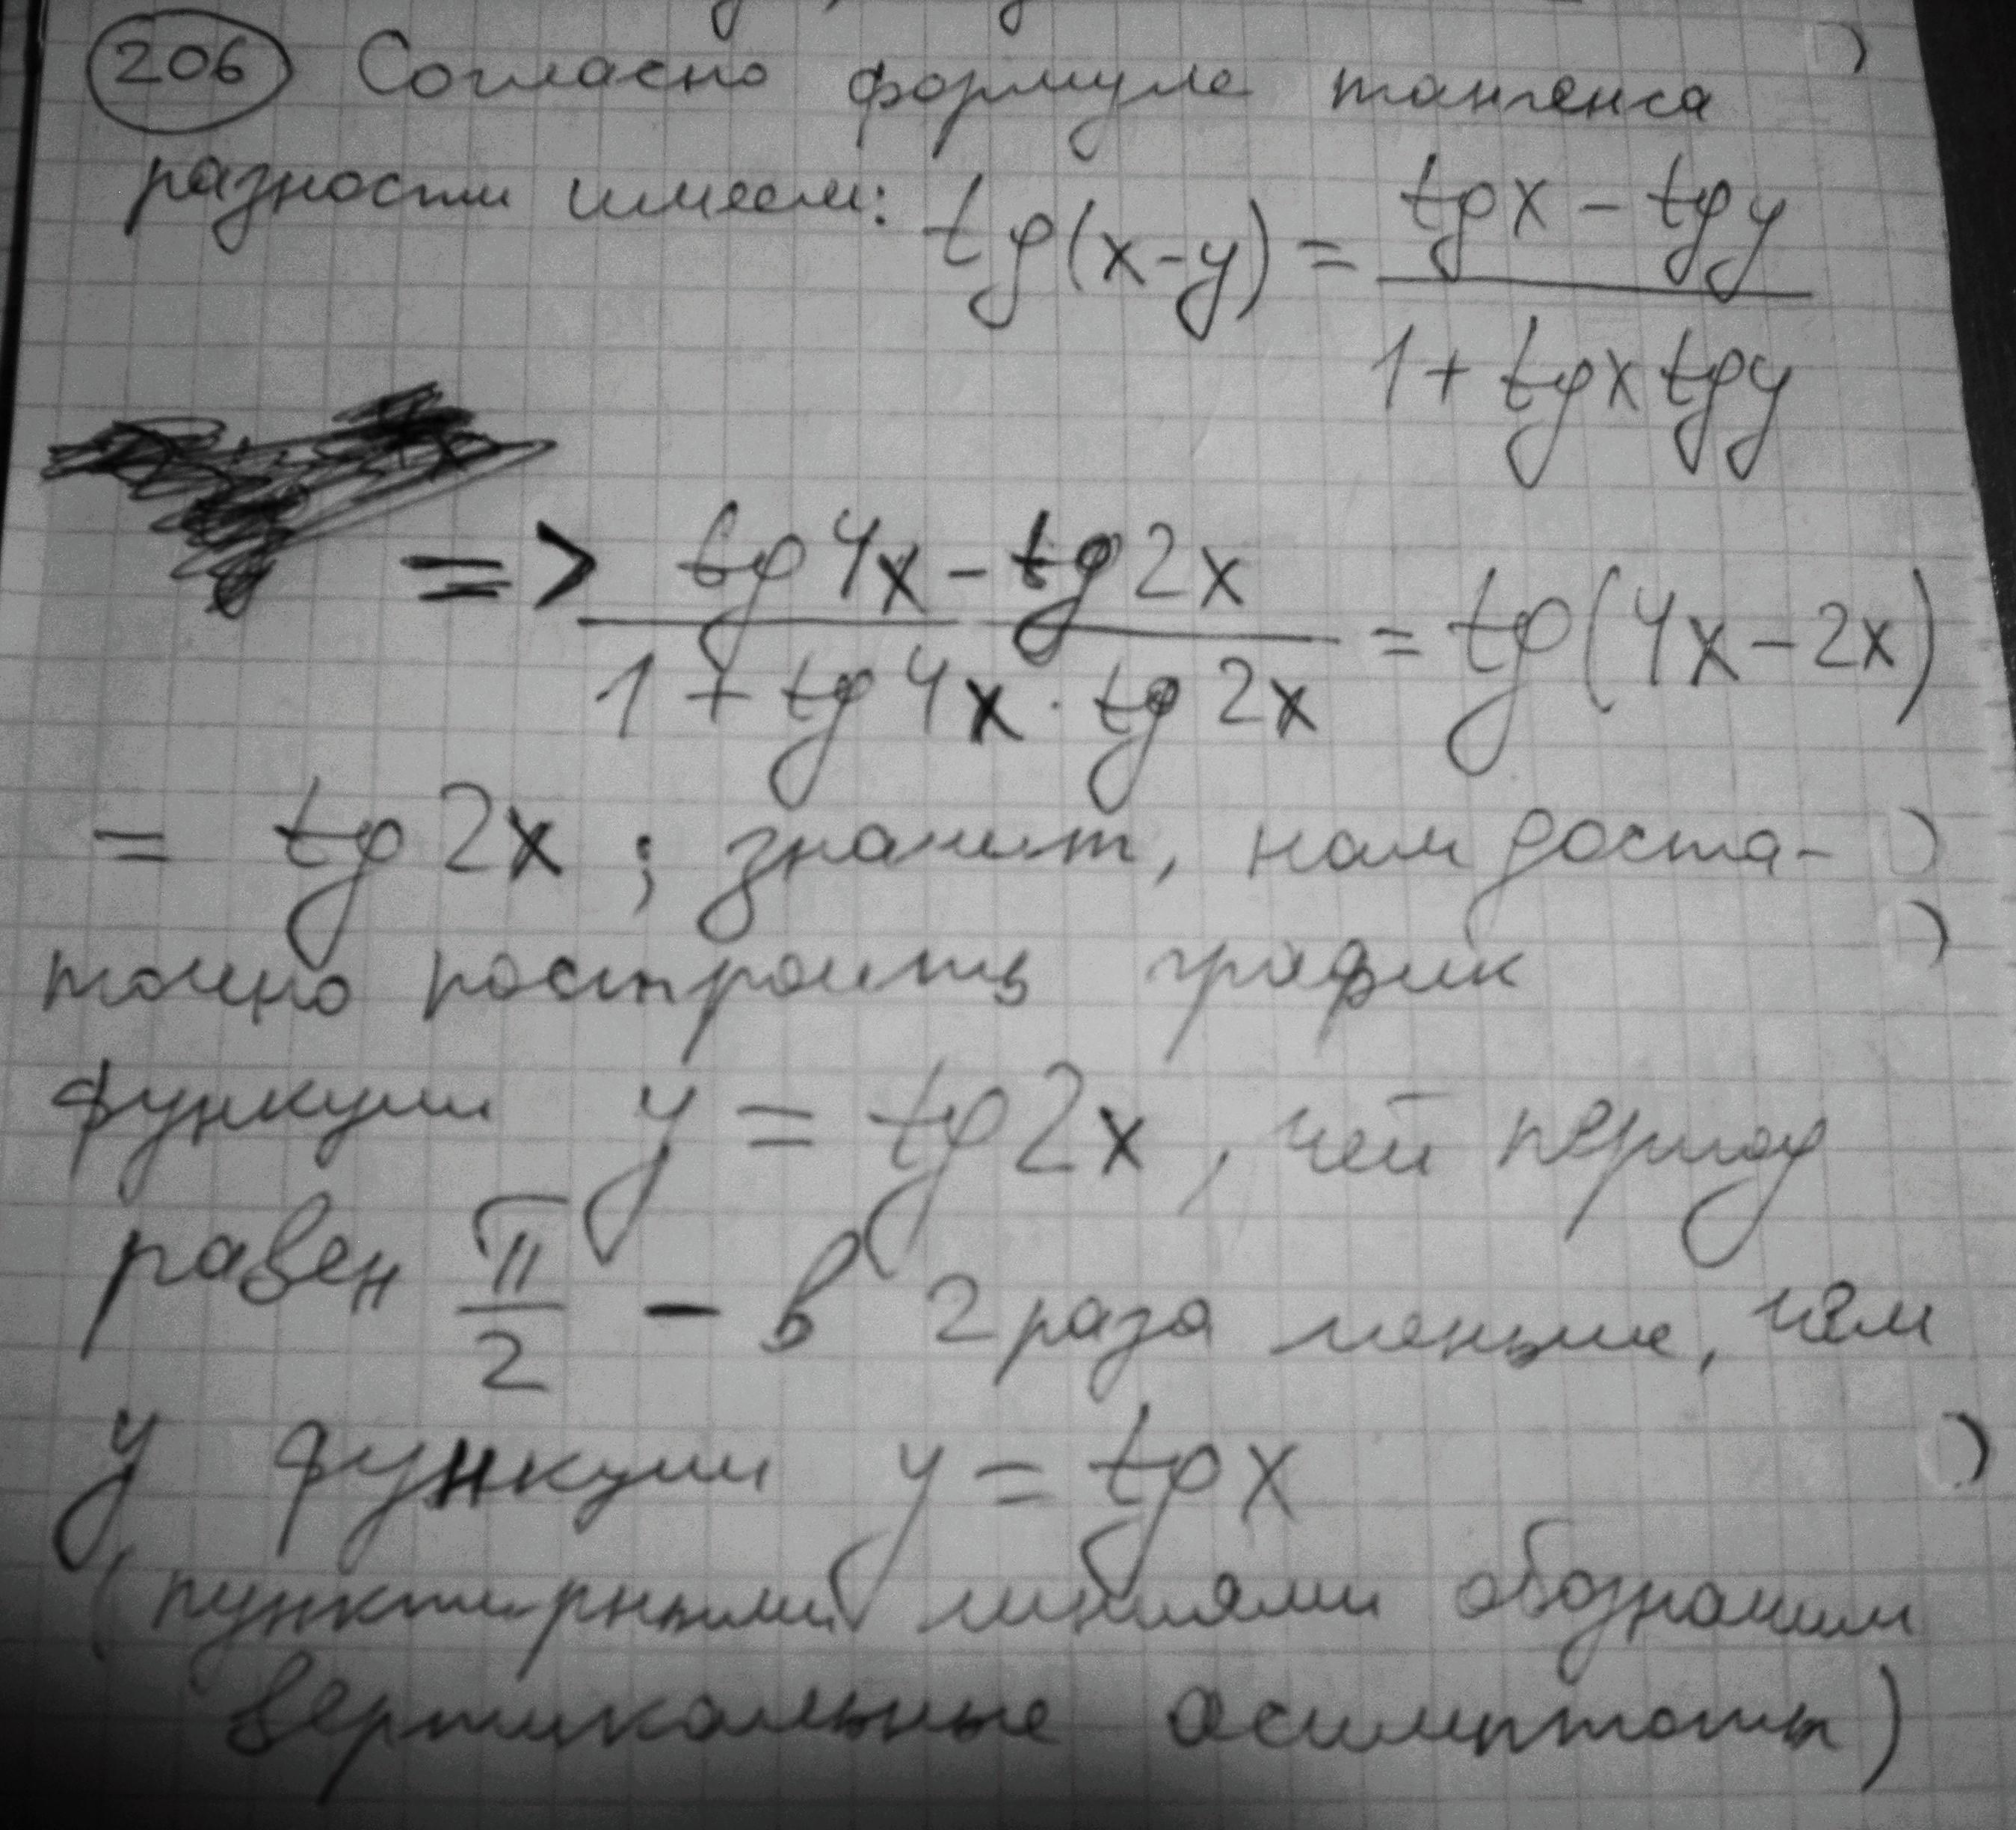 206 Согласно формуле тангенса
разности имеем: tg(x-y) = (tg x - tg y) / (1 + tg x tg y)
=> (tg 4x - tg 2x) / (1 + tg 4x · tg 2x) = tg(4x - 2x)
= tg 2x ; значит, нам доста-
точно построить график
функции y = tg 2x, чей период
равен π/2 - в 2 раза меньше, чем
у функции y = tg x
(пунктирными линиями обозначим
вертикальные асимптоты)